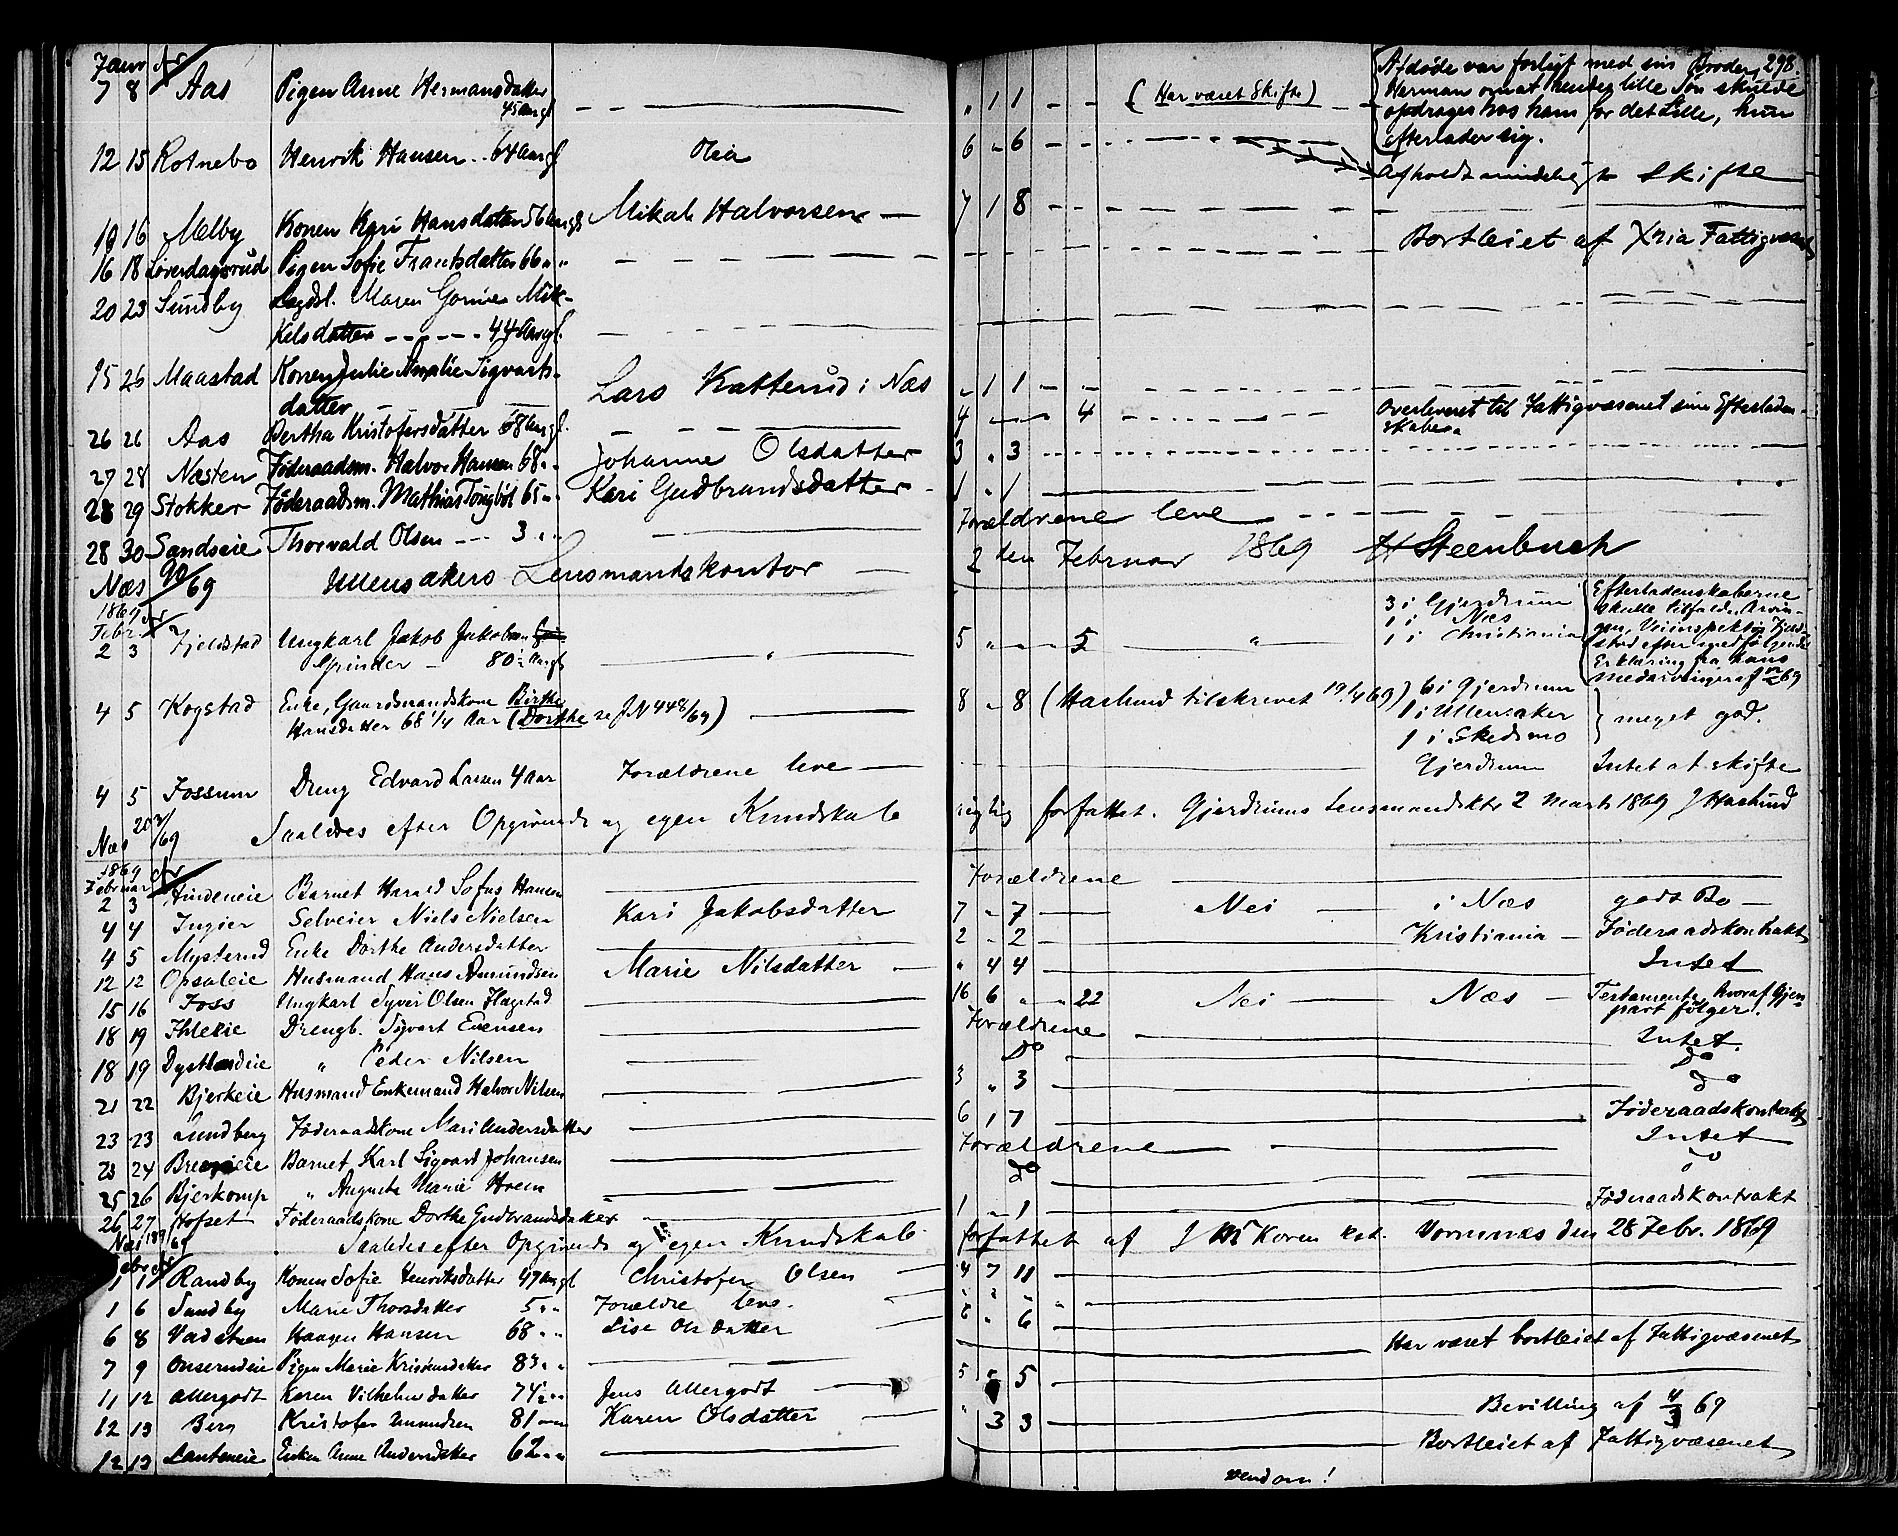 Januar
7 8 Aas Pigen Anne Hermansdatter
45 Aargl
" 1 1 (Har været Skifte)
Afdøde var forligt med sin Broder 298.
Herman om at hendes lille Søn skulde
opdrages hos ham for det Lille, hun
efterlader sig.
12 15 Rotnebo Henrik Hansen .. 64 Aargl Olia 6 " 6
Afholdt mindeligt Skifte
19 16 Melby Konen Kari Hansdatter 56 Aargl Mikal Halvorsen 7 1 8
16 18 Løverdagsrud Pigen Sofie Frantsdatter 66 " " Bortleiet af Xnia Fattigvæsen
20 23 Sundby Lægdsl. Maren Gorine Mik-
kelsdatter 44 Aargl.
15 26 Maastad Konen Julie Amalie Sigvarts-
datter Lars Katterud i Næs " 1 1
26 26 Aas Bertha Kristofersdatter 68 Aargl. 4 " " 4 Overleveret til Fattigvæsenet sine Efterladen-
skaber
27 28 Næsten Føderaadsm. Halvor Hansen 68 " " Johanne Olsdatter 3 " 3
28 29 Stokker Føderaadsm. Mathias Tongbøl 65 " " Kari Gudbrandsdatter 1 " 1
28 30 Sandseie Thorvald Olsen 3 " " Forældrene leve
Næs 90/69 Ullensakers Lensmandskontor 2den Februar 1869 H Steenbuch
1869
Febr.
2 3 Fjeldstad Ungkarl Jakob Jakobsen
Grinder 80 1/2 Aargl 5 " " 5 "
3 i Gjerdrum
1 i Næs
1 i Christiania
Efterladenskaberne
skulle tilfalde Arvin-
gen, Veiinspektør Fjeld-
stad efter medfølgende
Erklæring fra hans
Medarvinger af 69
4 5 Kogstad Enke, Gaardmandskone Birthe
Hansdatter 68 1/4 Aar (Dorthe se JN 448/69)
8 " 8 (Haslund tilskrevet 19/4 69)
6 i Gjerdrum
1 i Ullensaker
1 i Skedsmo
meget god.
4 5 Fossum Dreng Edvard Larsen 4 Aar Forældrene leve Gjerdrum Intet at skifte
Næs 203/69 Saaledes efter Opgivende og egen Kundskab rigtig forfattet. Gjerdrums Lensmandskt 2 Marts 1869 J Haslund
1869
Februar
2 3 Andeneie Barnet Harald Sofus Hansen Forældrene
4 4 Ingier Selveier Niels Nielsen Kari Jakobsdatter 7 " 7 Nei i Næs godt Bo
4 5 Mysterud Enke Dorthe Andersdatter 2 " 2 Kristiania Føderaadskontrakt
12 12 Opsaleie Husmand Hans Amundsen Marie Nilsdatter " 4 4 Intet
15 16 Foss Ungkarl Syver Olsen Hagstad 16 6 " " 22 Nei Næs Testamente hvoraf Gjen-
part følger.
18 19 Ihleeie Drengb. Sigvart Evensen Forældrene Intet.
18 19 Dystlandeie " Peder Nilsen Do do
21 22 Bjerkeie Husmand Enkemand Halvor Nilsen 3 " 3 do
23 23 Lundberg Føderaadskone Mari Andersdatter 6 1 7 Føderaadskontrakt
23 24 Barnet Karl Sigvart Johansen Forældrene Intet
25 26 Bjerkomp " Augusta Marie Hoem do
26 27 Hofset Føderaadskone Dorthe Gudbrandsdatter 1 " 1 Føderaadskontrakt
Næs 189/69 Saaledes efter Opgivende og egen Kundskab forfattet af J M Koren kst. Vormnæs den 28 Febr. 1869
1 1 Randby Konen Sofie Henriksdatter 49 Aargl Christofer Olsen 4 7 11
1 6 Sundby Marie Thorsdatter 5 " " Forældre leve. " " "
6 8 Vadstuen Haagen Hansen 68 " " Lise Olsdatter 6 " 6
7 9 Onserudeie Pigen Marie Kristensdatter 83 " " Har været bortleiet af Fattigvæsenet
11 12 Allergodt Karen Vilhelmsdatter 74 1/2 " " Jens Allergodt 5 " 5
12 13 Berg Kristofer Amundsen 81 " " Karen Olsdatter " 3 3 Bevilling af 4/3 69
12 13 Lauteneie Enken Anne Andersdatter 62 " " Bortleiet af Fattigvæsenet
vend om!